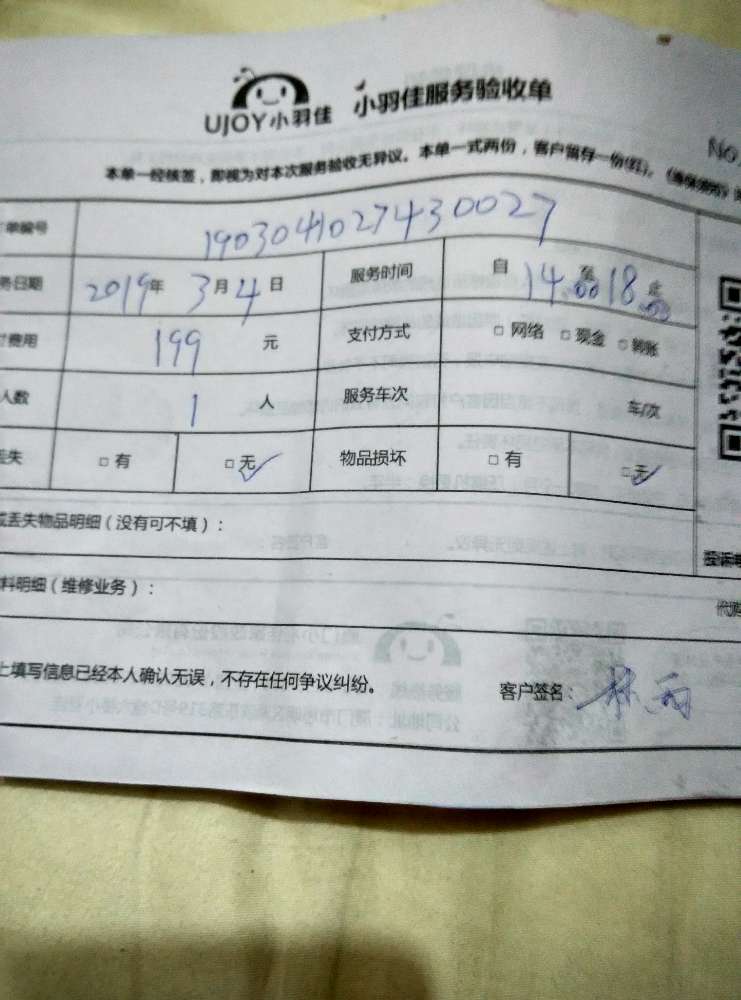 UJOY小羽佳 小羽佳服务验收单
No.
本单一经核签，即视为对本次服务验收无异议。本单一式两份，客户留存一份(红)。
单编号 190304102743 0027
务日期 2019年 3月4日 服务时间 自 14:00 至 18:00 止
费用 199 元 支付方式 □ 网络 □ 现金 □ 转账
人数 1 人 服务车次 车/次
丢失 □ 有 □ 无✓ 物品损坏 □ 有 □ 无✓
或丢失物品明细（没有可不填）：
料明细（维修业务）：
上填写信息已经本人确认无误，不存在任何争议纠纷。 客户签名：林雨